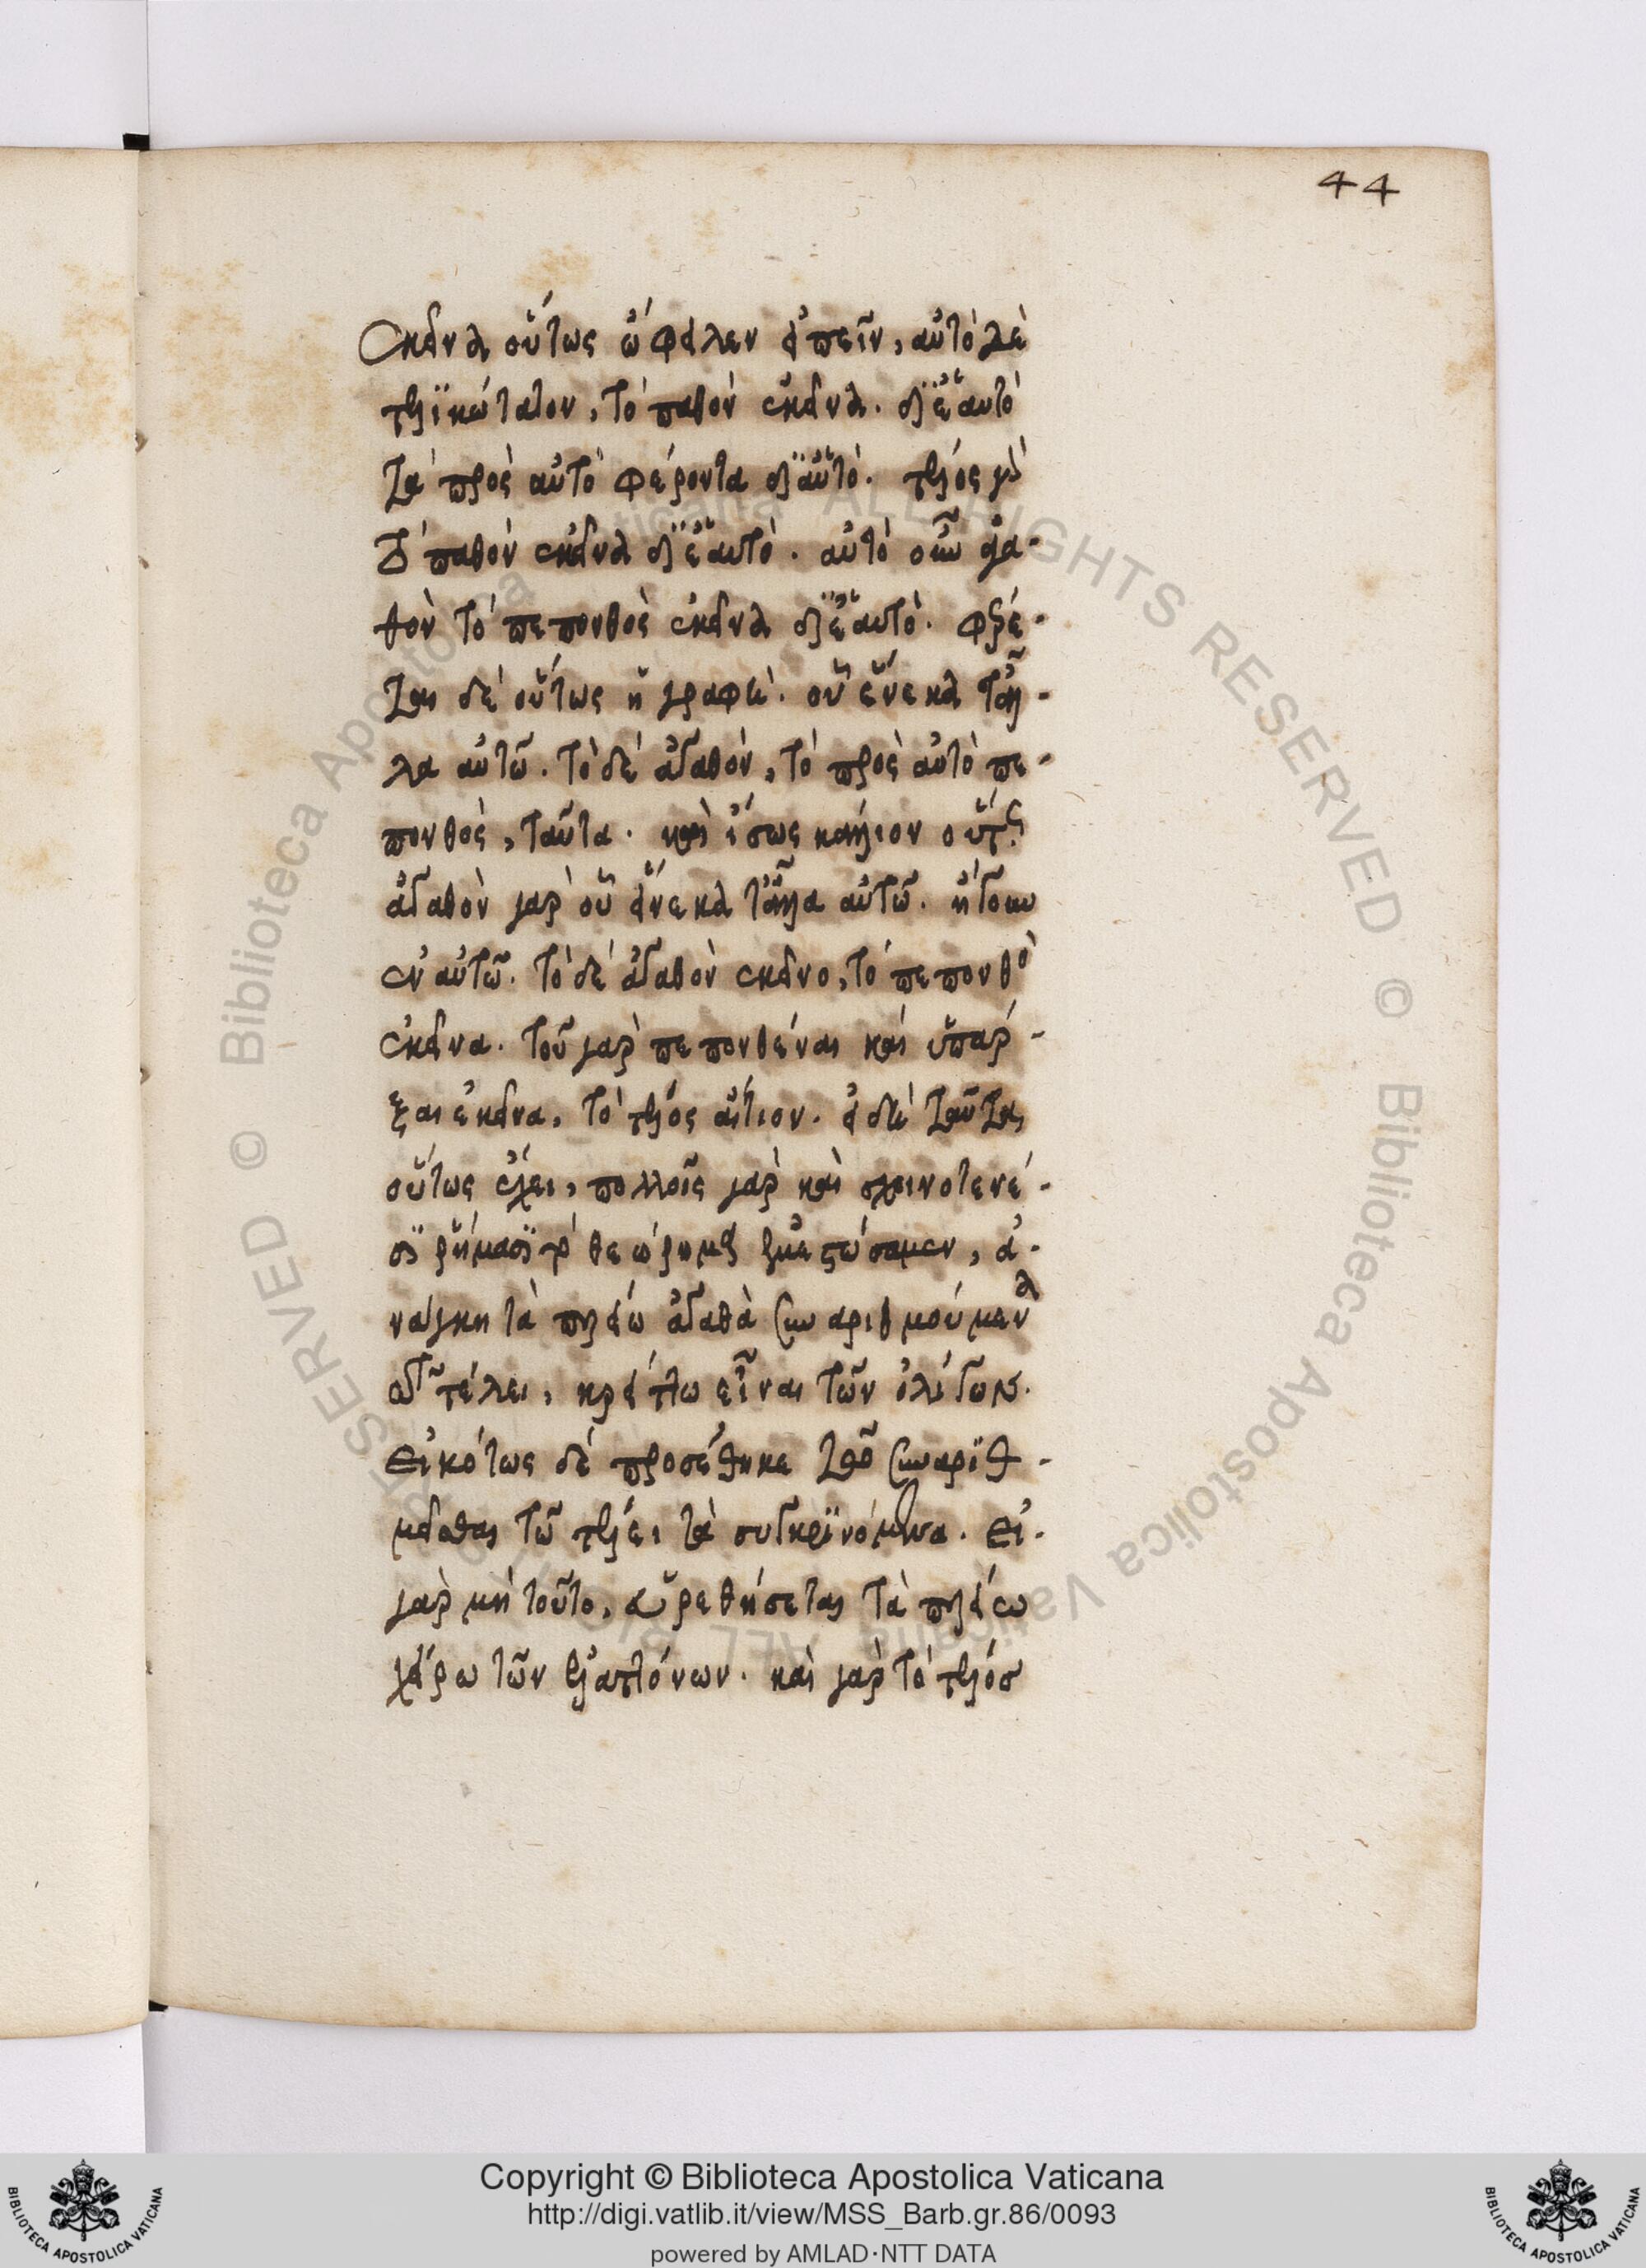 44
ἐκεῖνα οὕτως ὤφειλεν εἰπεῖν, αὐτὸ δὲ
τελικώτατον, τὸ παθὸν ἐκεῖνα. δι' ἑαυτὸ
τὰ πρὸς αὐτὸ φέροντα δι' αὐτό. τέλος γὰρ
τὸ παθὸν ἐκεῖνα δι' ἑαυτό. αὐτὸ οὖν ἀγα-
θὸν τὸ πεπονθὸς ἐκεῖνα δι' ἑαυτό. φέρε-
ται δὲ οὕτως ἡ γραφή. οὗ ἕνεκα τἆλ-
λα αὐτῶ. τὸ δὲ ἀγαθὸν, τὸ πρὸς αὐτὸ πε-
πονθὸς, ταῦτα. καὶ ἴσως κάλλιον οὕτως.
ἀγαθὸν γὰρ οὗ εἵνεκα τἆλλα αὐτῶ. ἤγουν
ἐν αὐτῶ. τὸ δὲ ἀγαθὸν ἐκεῖνο, τὸ πεπονθὸς
ἐκεῖνα. τοῦ γὰρ πεπονθέναι καὶ ὑπάρ-
ξαι ἐκεῖνα, τὸ τέλος αἴτιον. εἰ δὲ ταῦτα
οὕτως ἔχει, πολλοῖς γὰρ καὶ σχοινοτενέ-
σι ῥήμασι τὸ θεώρημα ἐπιστώσαμεν, ἀ-
νάγκη τὰ πλείω ἀγαθὰ συναριθμούμενα
ἐν τῶ τέλει, κρείττω εἶναι τῶν ὀλίγων.
εἰκότως δὲ προσέθηκε τὸ συναριθ-
μεῖσθαι τῶ τέλει τὰ συγκρινόμενα. εἰ
γὰρ μὴ τοῦτο, εὑρεθήσεται τὰ πλείω
χείρω τῶν ἐλαττόνων. καὶ γὰρ τὸ τέλος
Copyright © Biblioteca Apostolica Vaticana
http://digi.vatlib.it/view/MSS_Barb.gr.86/0093
powered by AMLAD·NTT DATA
BIBLIOTECA APOSTOLICA VATICANA
BIBLIOTECA APOSTOLICA VATICANA
© Biblioteca Apostolica Vaticana ALL RIGHTS RESERVED
© Biblioteca Apostolica Vaticana ALL RIGHTS RESERVED